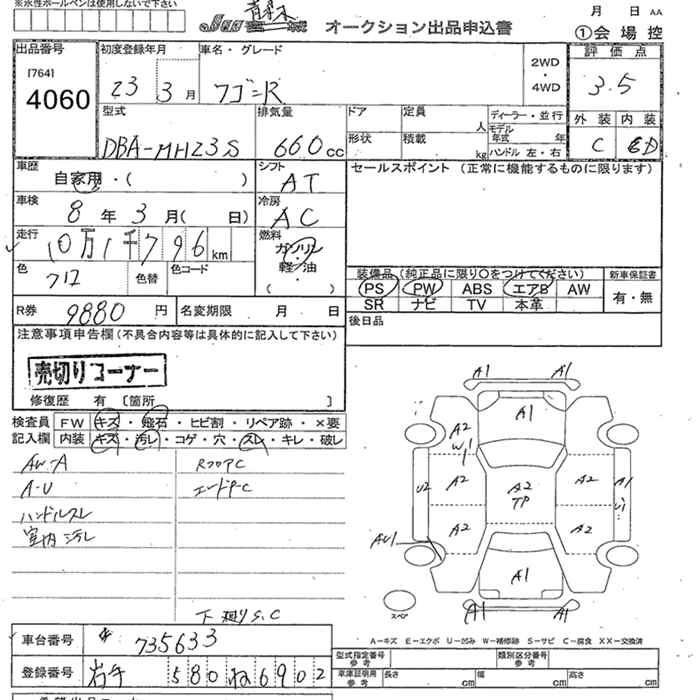 ※水性ボールペンは使用しないで下さい
オークション出品申込書
月 日 AA
①会場控
出品番号
[764]
4060
初度登録年月
23 3 月
車名・グレード
ワゴンR
2WD
・
4WD
評価点
3.5
外装 内装
C
型式
DBA-MH23S
排気量
660 cc
ドア
形状
定員
人
積載
kg
ディーラー・並行
モデル年式 年
ハンドル 左・右
車歴
自家用・( )
シフト
AT
セールスポイント (正常に機能するものに限ります)
車検
8 年 3 月( 日)
冷房
AC
走行
10万1千796 km
燃料
ガソリン
軽・油
( )
色
色替
色コード
装備品 (純正品に限り○をつけてください)
PS PW ABS エアB AW
SR ナビ TV 本革
新車保証書
有・無
R券
9880 円
名変期限 月 日
後日品
注意事項申告欄(不具合内容等は具体的に記入して下さい)
売切りコーナー
修復歴 有 [箇所 ]
検査員
記入欄
FW キズ・飛石・ヒビ割・リペア跡・×要
内装 キズ・汚レ・コゲ・穴・スレ・キレ・破レ
AW-A
A-U
ハンドルスレ
室内汚レ
RフロアC
エンドP-C
下廻りS.C
A1 A1
A1
A2
W1
A2
A2
TP
A2
A1
U2
U1
A2
A2
AU1
A1
A1 A1
スペア
A-キズ E-エクボ U-凹み W-補修跡 S-サビ C-腐食 XX-交換済
車台番号
735633
登録番号
岩手 580 ね 6902
型式指定番号
参考
類別区分番号
参考
車庫証明用
参考
長さ cm
幅 cm
高さ cm